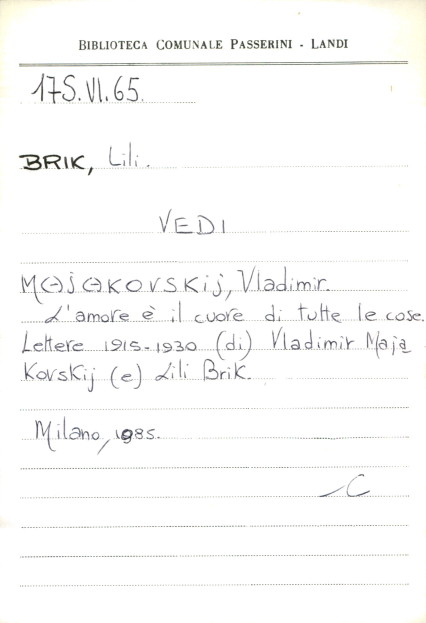 BIBLIOTECA COMUNALE PASSERINI - LANDI
17S.VI.65.
BRIK, Lili.
VEDI
MAJAKOVSKIJ, Vladimir.
L'amore è il cuore di tutte le cose.
Lettere 1915-1930 (di) Vladimir Maja
Kovskij (e) Lili Brik.
Milano, 1985.
C